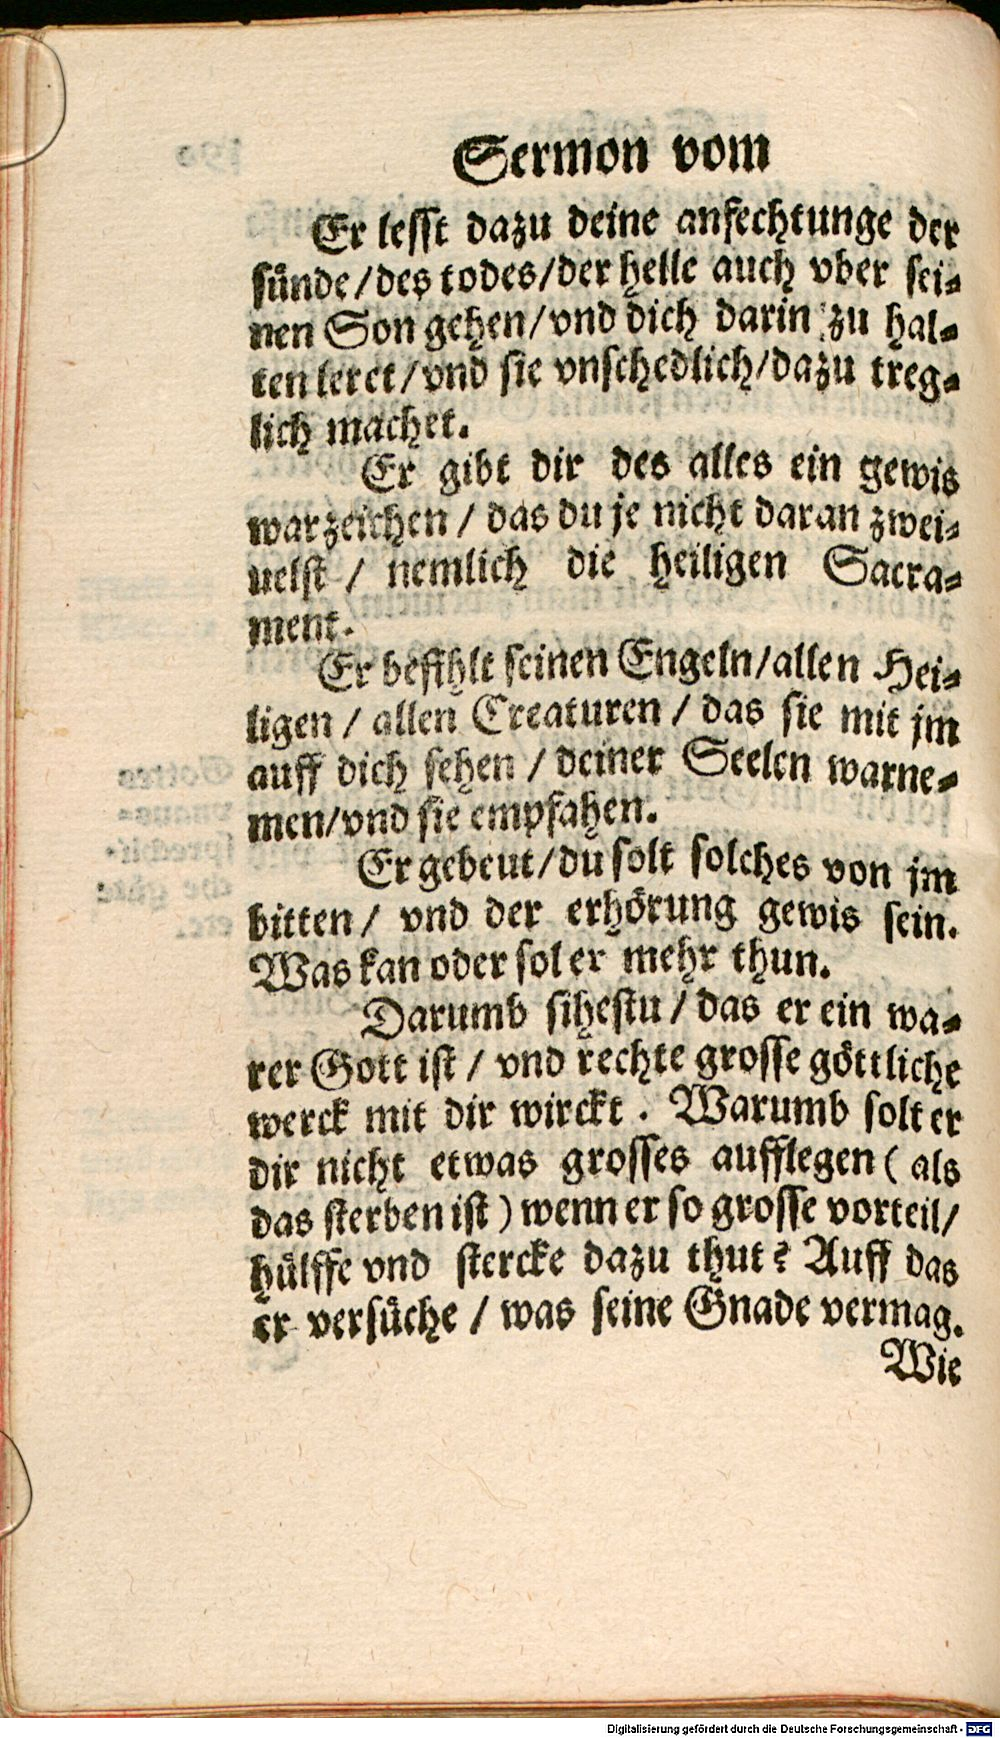 Sermon vom
Er lesst dazu deine anfechtunge der
sünde/des todes/der helle auch vber sei-
nen Son gehen/vnd dich darin zu hal-
ten leret/vnd sie vnschedlich/dazu treg-
lich machet.
Er gibt dir des alles ein gewis
warzeichen / das du je nicht daran zwei-
uelst / nemlich die heiligen Sacra-
ment.
Er befihlt seinen Engeln/allen Hei-
ligen / allen Creaturen / das sie mit jm
auff dich sehen / deiner Seelen warne-
men/vnd sie empfahen.
Er gebeut/du solt solches von jm
bitten / vnd der erhörung gewis sein.
Was kan oder sol er mehr thun.
Darumb sihestu / das er ein wa-
rer Gott ist / vnd rechte grosse göttliche
werck mit dir wirckt . Warumb solt er
dir nicht etwas grosses aufflegen ( als
das sterben ist ) wenn er so grosse vorteil/
hülffe vnd stercke dazu thut? Auff das
er versüche / was seine Gnade vermag.
Wie
Digitalisierung gefördert durch die Deutsche Forschungsgemeinschaft - DFG